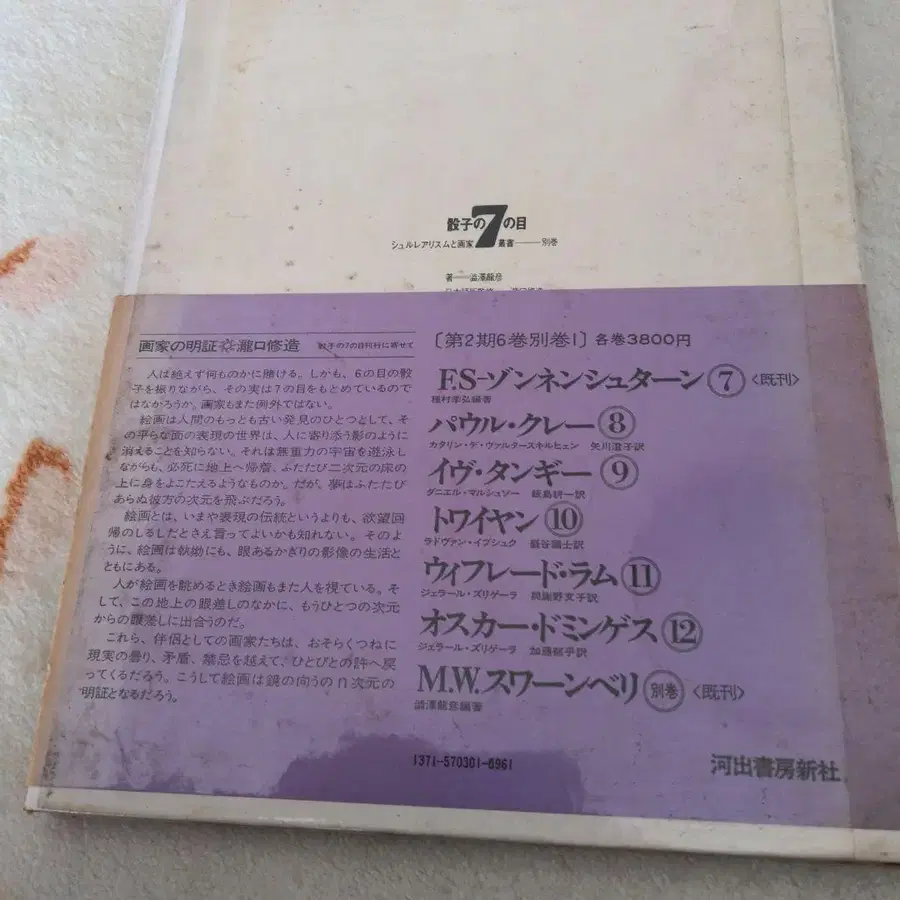 骰子の7の目
シュルレアリスムと画家叢書――別巻
著――澁澤龍彦
画家の明証✡瀧口修造 骰子の7の目刊行に寄せて
人は絶えず何ものかに賭ける。しかも、6の目の骰
子を振りながら、その実は7の目をもとめているので
はなかろうか。画家もまた例外ではない。
絵画は人間のもっとも古い発見のひとつとして、そ
の平らな面の表現の世界は、人に寄り添う影のように
消えることを知らない。それは無重力の宇宙を遊泳し
ながらも、必死に地上へ帰着、ふたたび二次元の床の
上に身をよこたえるようなものか。だが、夢はふたたび
あらぬ彼方の次元を飛ぶだろう。
絵画とは、いまや表現の伝統というよりも、欲望回
帰のしるしだとさえ言ってよいかも知れない。そのよ
うに、絵画は執拗にも、眼あるかぎりの影像の生活と
ともにある。
人が絵画を眺めるとき絵画もまた人を視ている。そ
して、この地上の眼差しのなかに、もうひとつの次元
からの眼差しに出合うのだ。
これら、伴侶としての画家たちは、おそらくつねに
現実の曇り、矛盾、禁忌を越えて、ひとびとの許へ戻
ってくるだろう。こうして絵画は鏡の向うのn次元の
明証となるだろう。
〔第2期6巻別巻1〕各巻3800円
F.S-ゾンネンシュターン⑦〈既刊〉
種村季弘編著
パウル・クレー⑧
カタリン・デ・ヴァルタースキルヒェン 矢川澄子訳
イヴ・タンギー⑨
ダニエル・マルシェソー 飯島耕一訳
トワイヤン⑩
ラドヴァン・イヴシュク 巖谷國士訳
ウィフレード・ラム⑪
ジェラール・ズリゲーラ 與謝野文子訳
オスカー・ドミンゲス⑫
ジェラール・ズリゲーラ 加藤郁乎訳
M.W.スワーンベリ 別巻〈既刊〉
澁澤龍彦編著
1371-570301-0961
河出書房新社